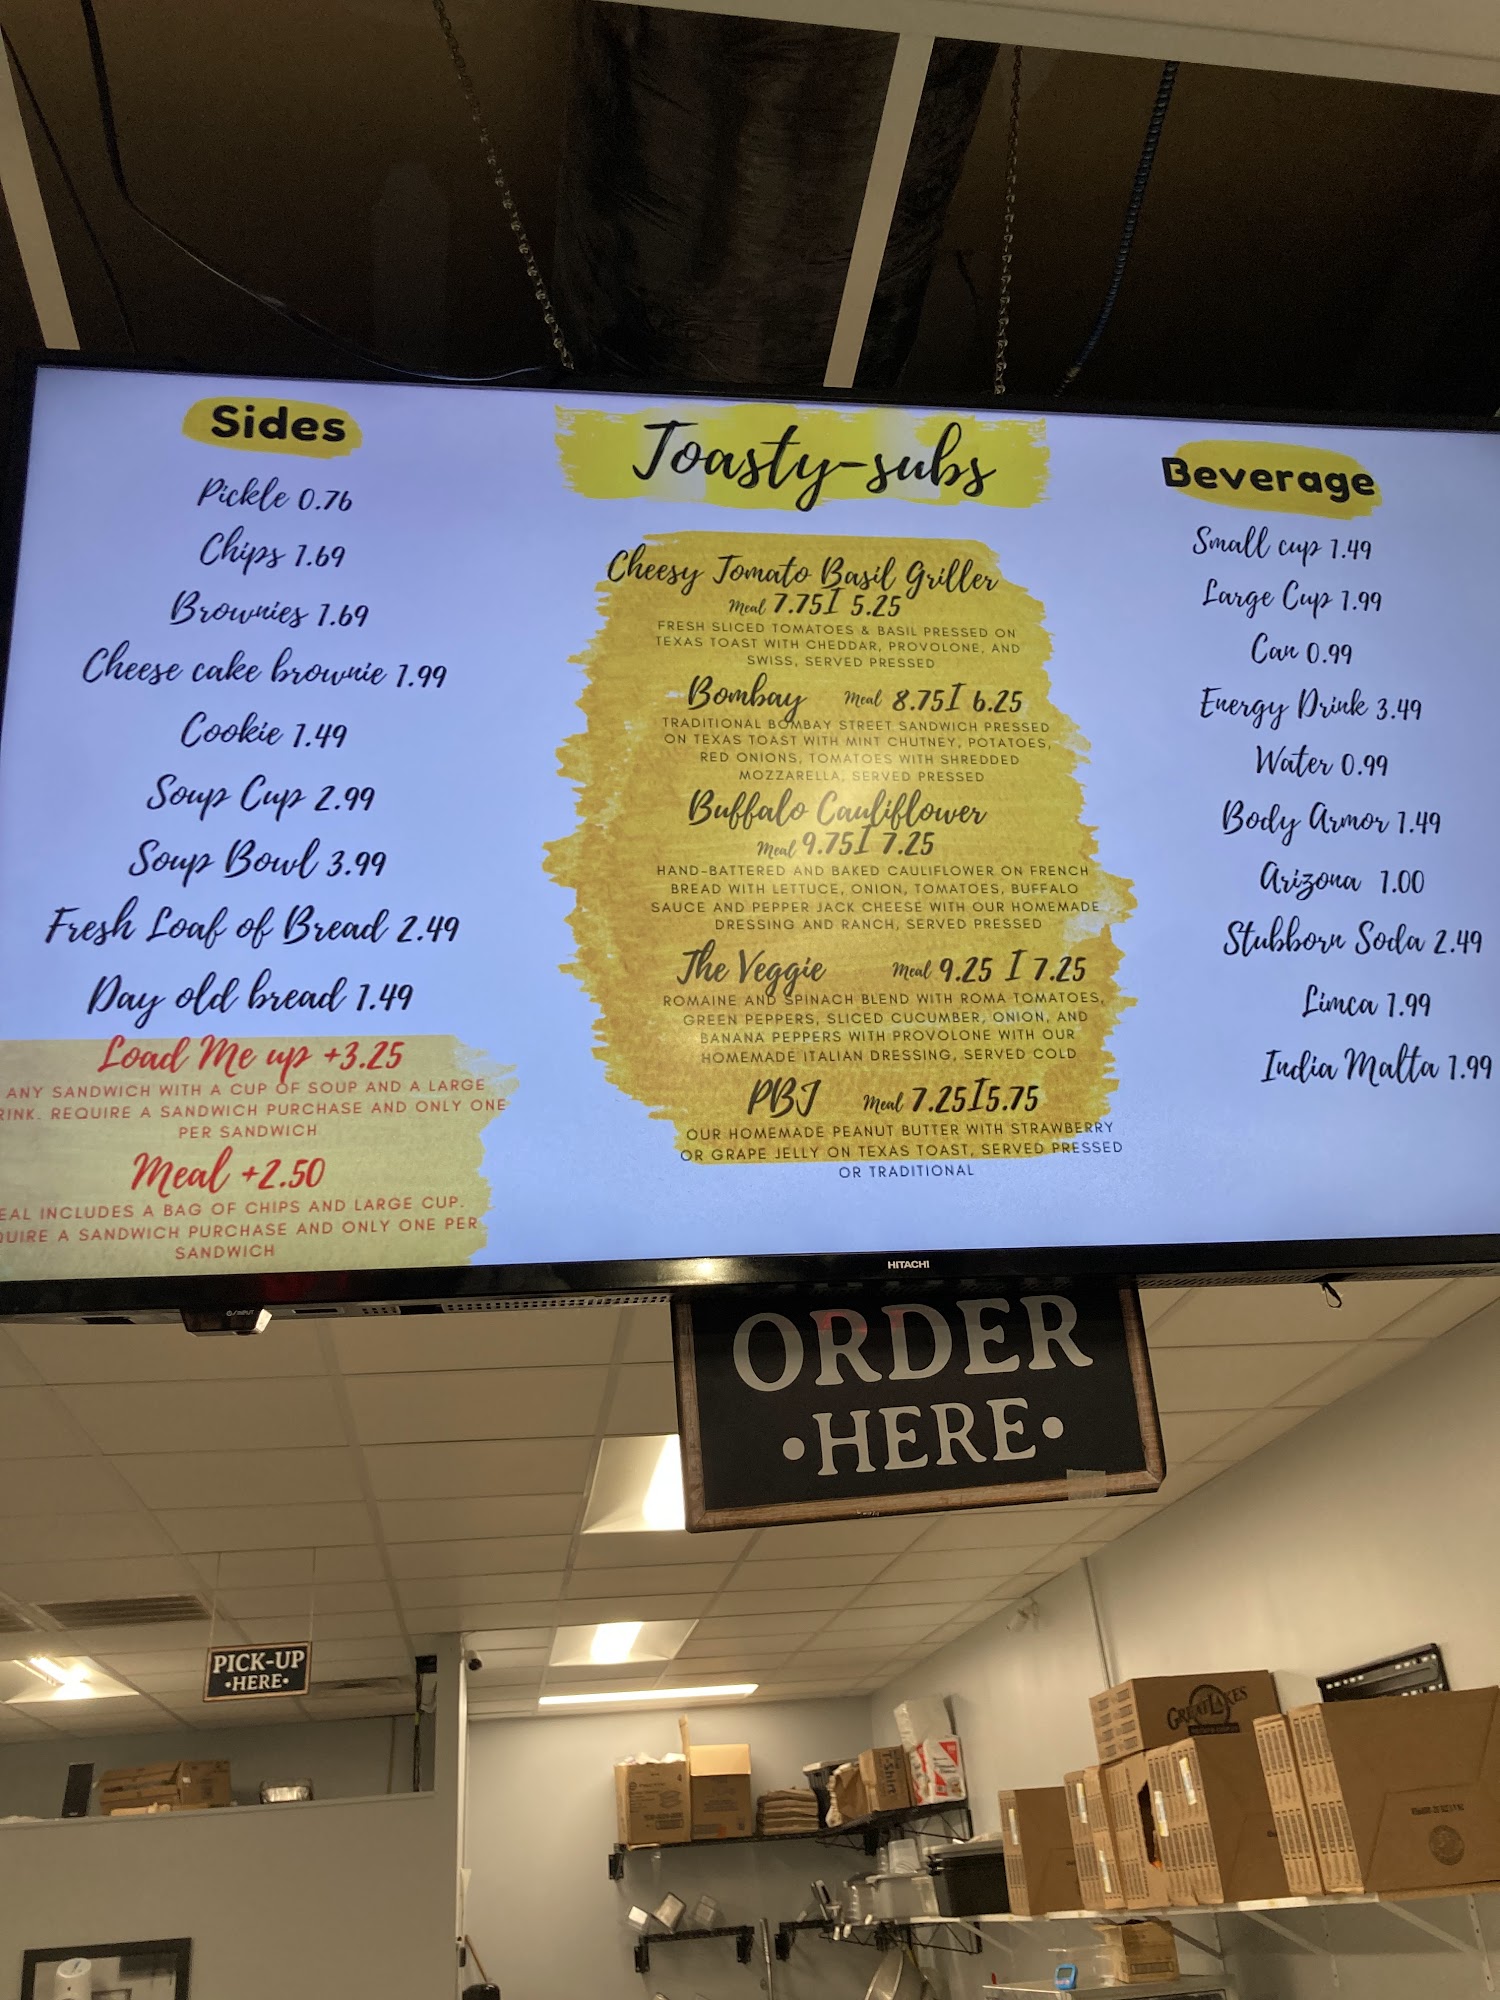 Sides
Pickle 0.76
Chips 1.69
Brownies 1.69
Cheese cake brownie 1.99
Cookie 1.49
Soup Cup 2.99
Soup Bowl 3.99
Fresh Loaf of Bread 2.49
Day old bread 1.49
Load Me up +3.25
ANY SANDWICH WITH A CUP OF SOUP AND A LARGE
RINK. REQUIRE A SANDWICH PURCHASE AND ONLY ONE
PER SANDWICH
Meal +2.50
EAL INCLUDES A BAG OF CHIPS AND LARGE CUP.
QUIRE A SANDWICH PURCHASE AND ONLY ONE PER
SANDWICH
Toasty-subs
Cheesy Tomato Basil Griller
Meal 7.75I 5.25
FRESH SLICED TOMATOES & BASIL PRESSED ON
TEXAS TOAST WITH CHEDDAR, PROVOLONE, AND
SWISS, SERVED PRESSED
Bombay Meal 8.75I 6.25
TRADITIONAL BOMBAY STREET SANDWICH PRESSED
ON TEXAS TOAST WITH MINT CHUTNEY, POTATOES,
RED ONIONS, TOMATOES WITH SHREDDED
MOZZARELLA, SERVED PRESSED
Buffalo Cauliflower
Meal 9.75I 7.25
HAND-BATTERED AND BAKED CAULIFLOWER ON FRENCH
BREAD WITH LETTUCE, ONION, TOMATOES, BUFFALO
SAUCE AND PEPPER JACK CHEESE WITH OUR HOMEMADE
DRESSING AND RANCH, SERVED PRESSED
The Veggie Meal 9.25 I 7.25
ROMAINE AND SPINACH BLEND WITH ROMA TOMATOES,
GREEN PEPPERS, SLICED CUCUMBER, ONION, AND
BANANA PEPPERS WITH PROVOLONE WITH OUR
HOMEMADE ITALIAN DRESSING, SERVED COLD
PBJ Meal 7.25I5.75
OUR HOMEMADE PEANUT BUTTER WITH STRAWBERRY
OR GRAPE JELLY ON TEXAS TOAST, SERVED PRESSED
OR TRADITIONAL
Beverage
Small cup 1.49
Large Cup 1.99
Can 0.99
Energy Drink 3.49
Water 0.99
Body Armor 1.49
Arizona 1.00
Stubborn Soda 2.49
Limca 1.99
India Malta 1.99
HITACHI
ORDER
•HERE•
PICK-UP
•HERE•
GREAT LAKES
T-Shirt